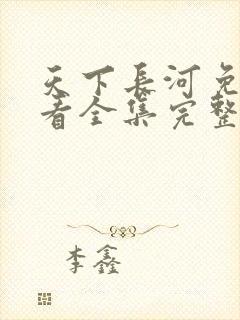 天下长河免
看全集完整
李鑫